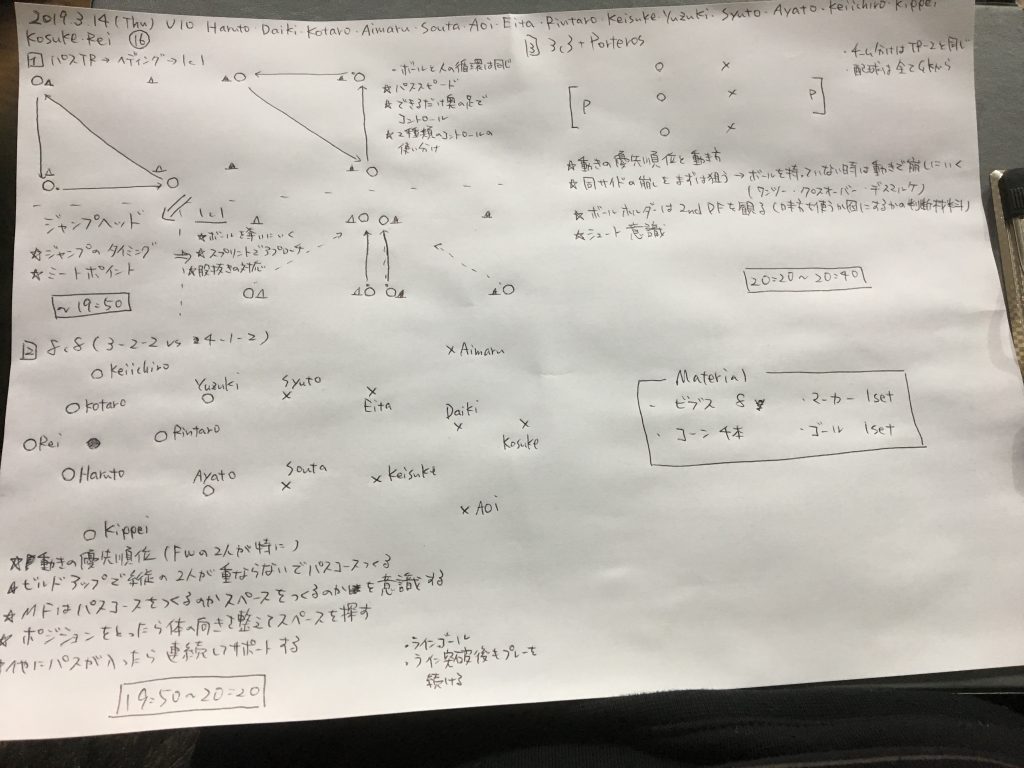 2019.3.14(Thu) U10 Haruto・Daiki・Kotaro・Aimaru・Souta・Aoi・Eita・Rintaro・Keisuke・Yuzuki・Syuto・Ayato・Keiichiro・Kippei
Kosuke・Rei ⑯
1 パスTR→ヘディング→1c1
・ボールと人の循環は同じ
☆パススピード
☆できるだけ奥の足で
コントロール
☆2種類のコントロールの
使い分け
ジャンプヘッド
☆ジャンプのタイミング
☆ミートポイント
~19:50
1c1
☆ボールを奪いにいく
⇒☆スプリントでアプローチ
☆股抜きの対応
2 8c8 (3-2-2 vs 4-1-2)
Keiichiro
× Aimaru
Yuzuki
Syuto
Kotaro
Eita
Daiki
Rei
Rintaro
Kosuke
Haruto
Ayato
Souta
× Keisuke
× Aoi
Kippei
☆動きの優先順位(FWの2人が特に)
☆ビルドアップで縦の2人が重ならないでパスコースつくる
☆MFはパスコースをつくるのかスペースをつくるのかを意識する
☆ポジションをとったら体の向きを整えてスペースを探す
にパスが入ったら連続してサポートする
19:50~20:20
・ラインゴール
・ライン突破後もプレーを
続ける
3 3c3+Porteros
・チーム分けはTR-2と同じ
・配球は全てGKから
P
P
☆動きの優先順位と動き方
☆同サイドの崩しをまずは狙う→ボールを持っていない時は動きで崩しにいく
(ワンツー・クロスオーバー・デスマルケ)
☆ボールホルダーは2nd DFを観る(味方を使うか囮にするかの判断材料)
☆シュート意識
20:20~20:40
Material
・ビブス 8
・マーカー 1set
・コーン 4本
・ゴール 1set